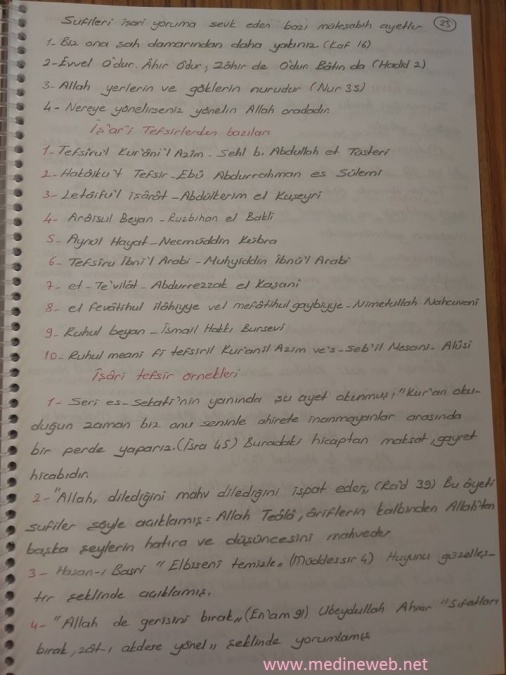 Sufileri işari yoruma sevk eden bazı müteşabih ayetler
25
1- Biz ona şah damarından daha yakınız (Kaf 16)
2- Evvel O'dur. Âhir O'dur, Zâhir de O'dur Bâtın da (Hadid 2)
3- Allah yerlerin ve göklerin nurudur (Nur 35)
4- Nereye yönelirseniz yönelin Allah oradadır
İş'ar'i Tefsirlerden bazıları
1- Tefsiru'l Kur'âni'l Azim - Sehl b. Abdullah et Tüsteri
2- Hakâiku't Tefsir - Ebû Abdurrahman es Sülemi
3- Letâifu'l işârât - Abdülkerim el Kuşeyri
4- Arâisul Beyan - Ruzbihan el Bakli
5- Aynül Hayat - Necmüddin Kübra
6- Tefsiru İbni'l Arabi - Muhyiddin İbnü'l Arabi
7- et-Te'vilât - Abdurrezzak el Kaşani
8- el fevâtihul ilâhiyye vel mefâtihul gaybiyye - Nimetullah Nahcuvani
9- Ruhul beyan - İsmail Hakkı Bursevi
10- Ruhul meani fi tefsiril Kur'anil Azim ve's-Seb'il Mesani - Alûsi
İşâri tefsir örnekleri
1- Seri es-Sekati'nin yanında şu ayet okunmuş, "Kur'an oku-
duğun zaman biz onu seninle ahirete inanmayanlar arasında
bir perde yaparız. (İsra 45) Buradaki hicaptan maksat, gayret
hicabıdır.
2- "Allah, dilediğini mahv dilediğini ispat eder,, (Ra'd 39) Bu âyeti
sufiler şöyle açıklamış = Allah Teâlâ, âriflerin kalbinden Allah'tan
başka şeylerin hatıra ve düşüncesini mahveder
3- Hasan-ı Basri "Elbiseni temizle,, (Müddessir 4) Huyunu güzelleş-
tir şeklinde açıklamış.
4- "Allah de gerisini bırak,, (En'am 91) Ubeydullah Ahrar "Sıfatları
bırak, zât-ı akdese yönel,, şeklinde yorumlamış
www.medineweb.net